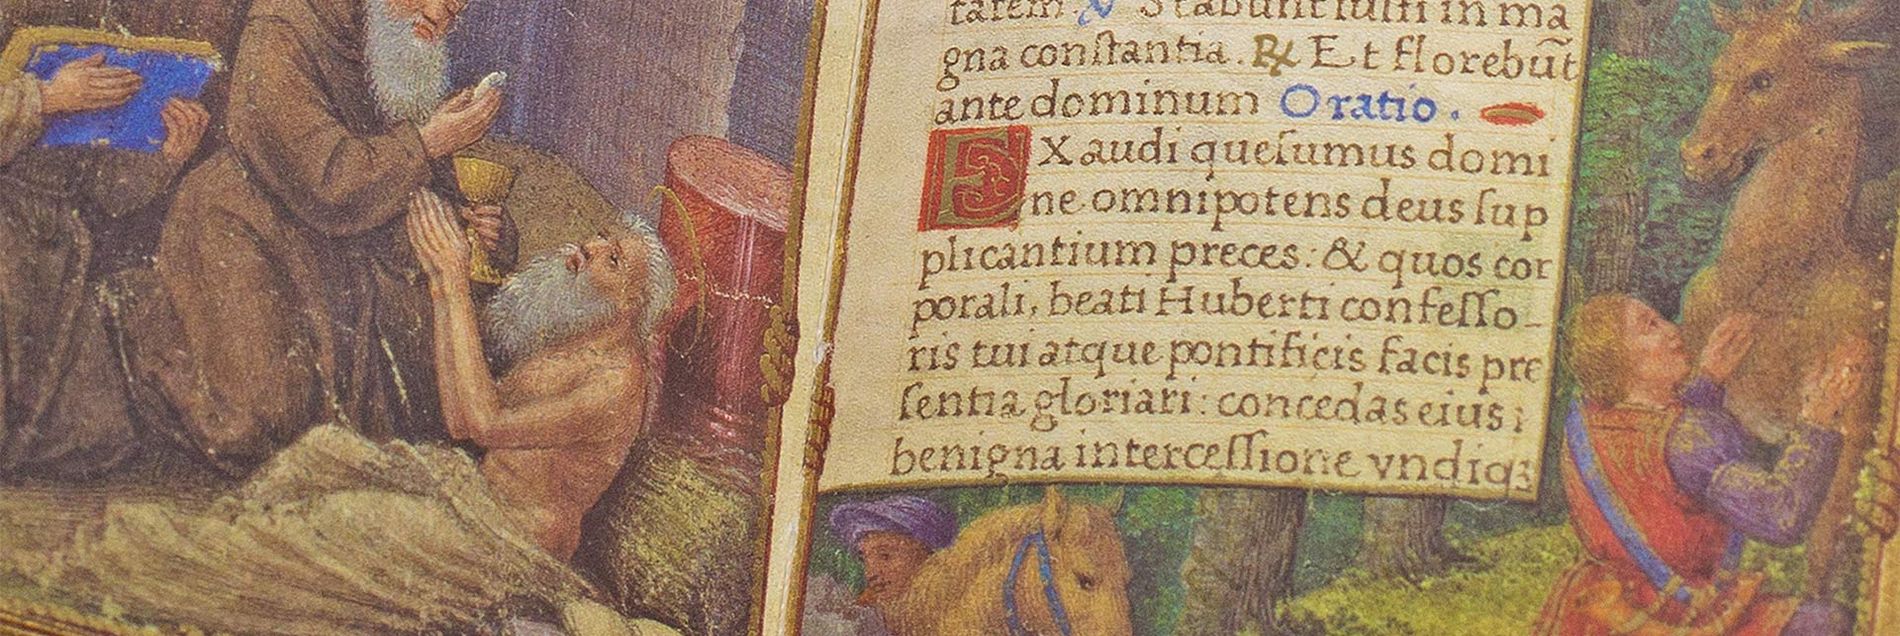 tatem. V Stabunt iusti in ma
gna conſtantia. ℟ Et florebūt
ante dominum Oratio.
EXaudi queſumus domi
ne omnipotens deus ſup
plicantium preces: & quos cor
porali, beati Huberti confeſſo-
ris tui atque pontificis facis pre
ſentia gloriari: concedas eius
benigna interceſſione vndiqꝫ